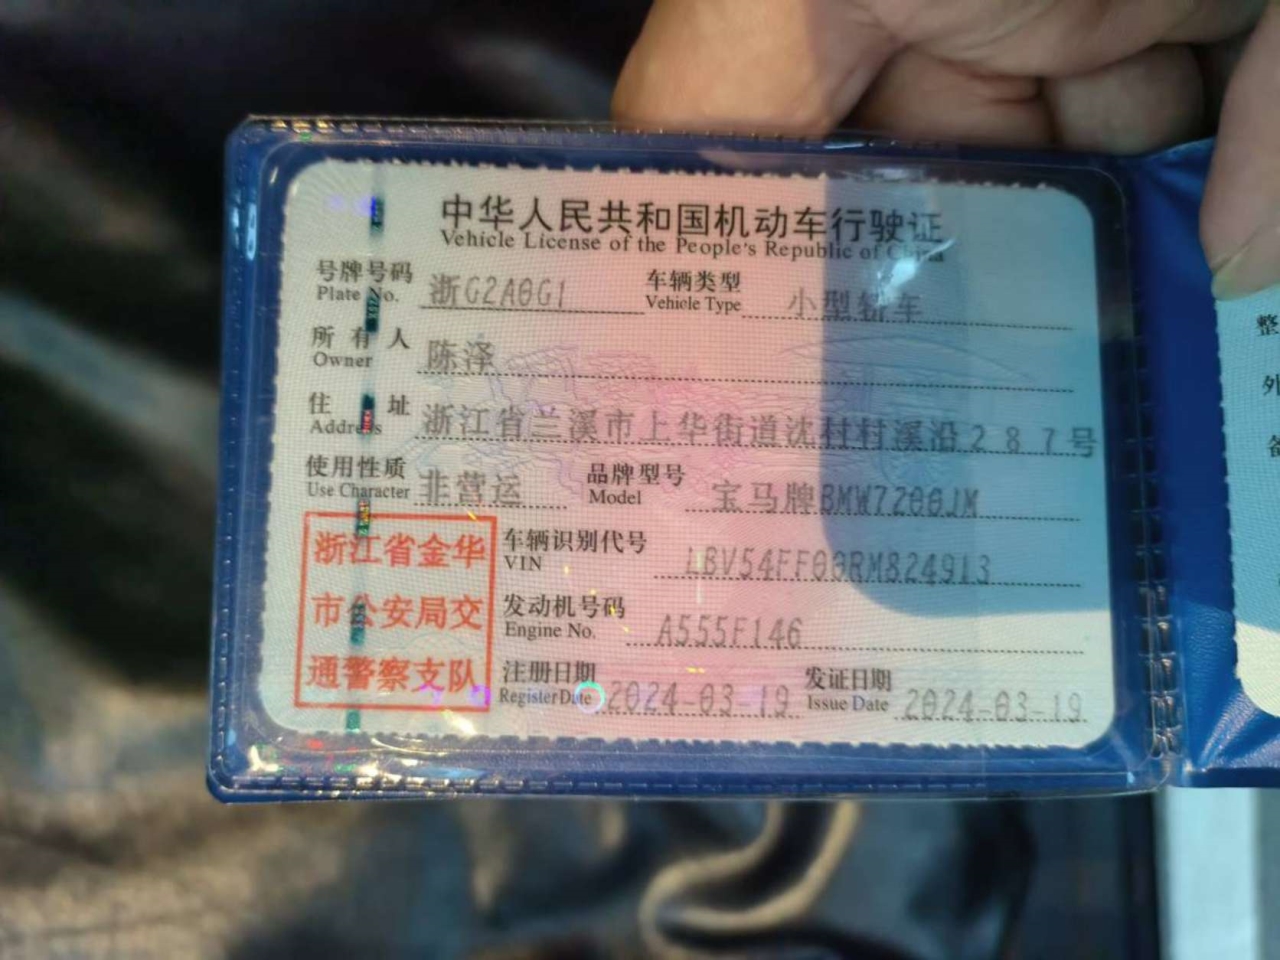 中华人民共和国机动车行驶证
Vehicle License of the People's Republic of China
号牌号码 浙G2A0G1 车辆类型 小型轿车
Plate No. Vehicle Type
所有人 陈泽
Owner
住址 浙江省兰溪市上华街道沈村村溪沿287号
Address
使用性质 非营运 品牌型号 宝马牌BMW7200JM
Use Character Model
浙江省金华
市公安局交
通警察支队
车辆识别代号 LBV54FF00RM824913
VIN
发动机号码 A555F146
Engine No.
注册日期 2024-03-19 发证日期 2024-03-19
Register Date Issue Date
整
外
备